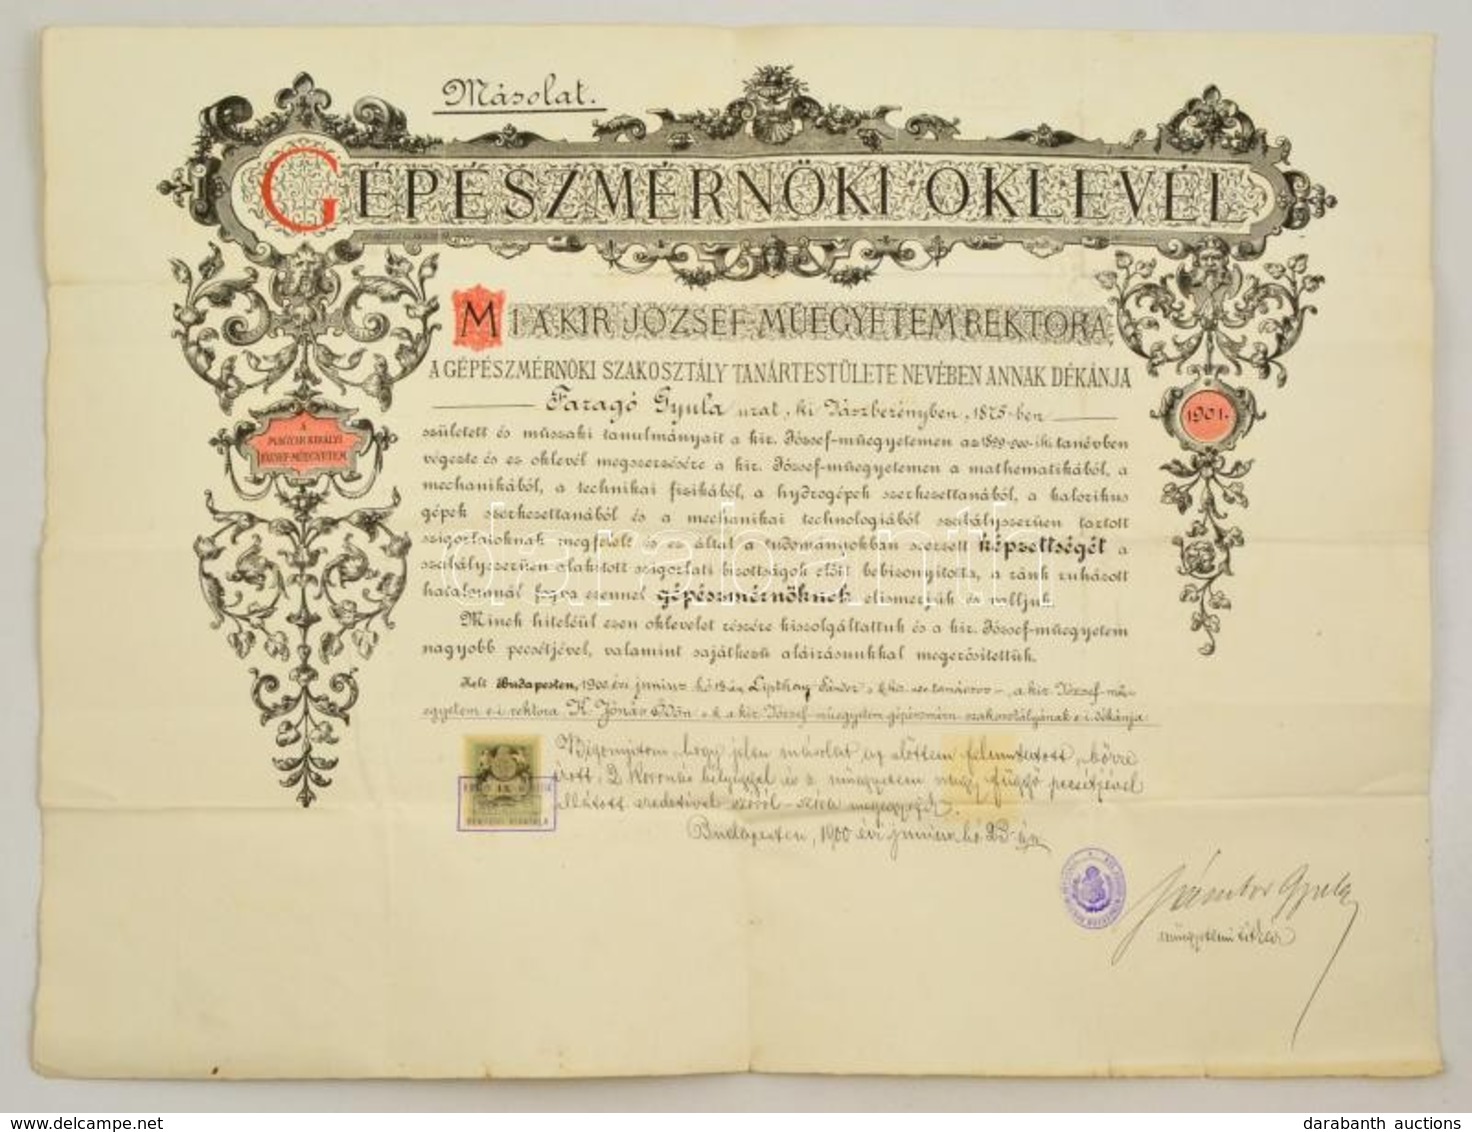 Másolat.
GÉPÉSZMÉRNÖKI OKLEVÉL
MI A KIR JÓZSEF-MŰEGYETEM REKTORA
A GÉPÉSZMÉRNÖKI SZAKOSZTÁLY TANÁRTESTÜLETE NEVÉBEN ANNAK DÉKÁNJA
Faragó Gyula urat, ki Jászberényben, 1875-ben
született és műszaki tanulmányait a kir. József-műegyetemen az 1899-900-iki tanévben
végezte és ez oklevél megszerzésére a kir. József-műegyetemen a mathematikából, a
mechanikából, a technikai fizikából, a hydrogépek szerkezettanából, a kalorikus
gépek szerkezettanából és a mechanikai technologiából szabályszerűen tartott
szigorlatoknak megfelelt és ez által a tudományokban szerzett képzettségét a
szabályszerűen alakított szigorlati bizottságok előtt bebizonyította, a ránk ruházott
hatalomnál fogva ezennel gépészmérnöknek elismerjük és valljuk.
Minek hiteléül ezen oklevelet részére kiszolgáltattuk és a kir. József-műegyetem
nagyobb pecsétjével, valamint sajátkezű aláírásunkkal megerősítettük.
Kelt Budapesten, 1900 évi junius hó Lipthay Sándor s.k. kir. tanácsos, a kir. József-mű-
egyetem e.i. rektora K. Jónás Ödön s.k. a kir. József-műegyetem gépészmérn. szakosztályának e.i. dékánja.
Bizonyítom, hogy jelen másolat az előttem felmutatott, bőrre
írott, 2 koronás bélyeggel és a műegyetem nagy, függő pecsétjével
ellátott eredetivel szóról-szóra megegyező.
Budapesten, 1900 évi junius hó 23-án
Gyula
műegyetemi titkár
A
MAGYAR KIRÁLYI
JÓZSEF-MŰEGYETEM
1901.
darabanth
darabanth auctions
delcampe.net